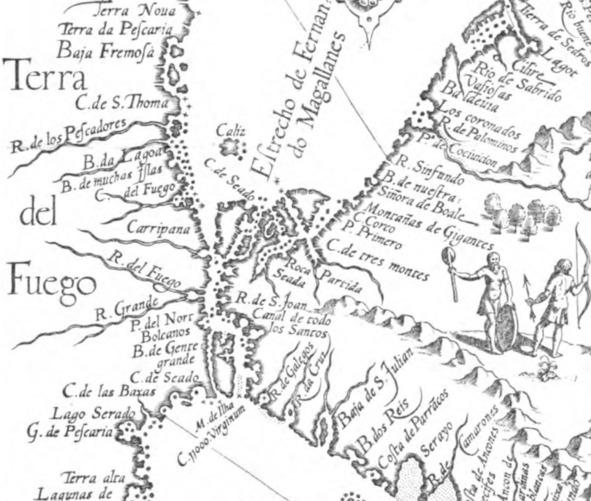 Terra Nova
Terra da Pescaria
Baja Fremosa
Terra
C. de S. Thoma
R. de los Pescadores
B. da Lagoa
B. de muchas Islas
C. del Fuego
del
Carripana
R. del Fuego
Fuego
R. Grande
P. del Nort
Bolcanos
B. de Gente
grande
C. de Seado
C. de las Baxas
Lago Serado
G. de Pescaria
Terra alta
Lagunas de
Caliz
C. de Seado
Estrecho de Fernan
do Magallanes
Roca
Seada
Partida
R. de S. Joan
Canal de todo
los Santos
M. de Ilha
C. 11000. Virginum
R. de Galegos
R. da Cruz
Bafia de S. Julian
B. dos Reis
Costa de Parracos
Serayo
R. de Camarones
Terra de Sedros
Rio buene
Lagor
Cilire
Rio de Sabrido
Vasiosas
Baldeuia
Los coronados
R. de Palominos
P. de Cocincion
R. Sinfundo
B. de nuestra
Sinora de Boale
Montañas de Gigantes
C. Corco
P. Primero
C. de tres montes